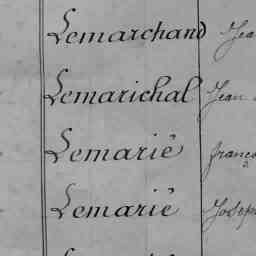 Lemarchand Jea
Lemarichal Jean
Lemarié franço
Lemarié Joseph